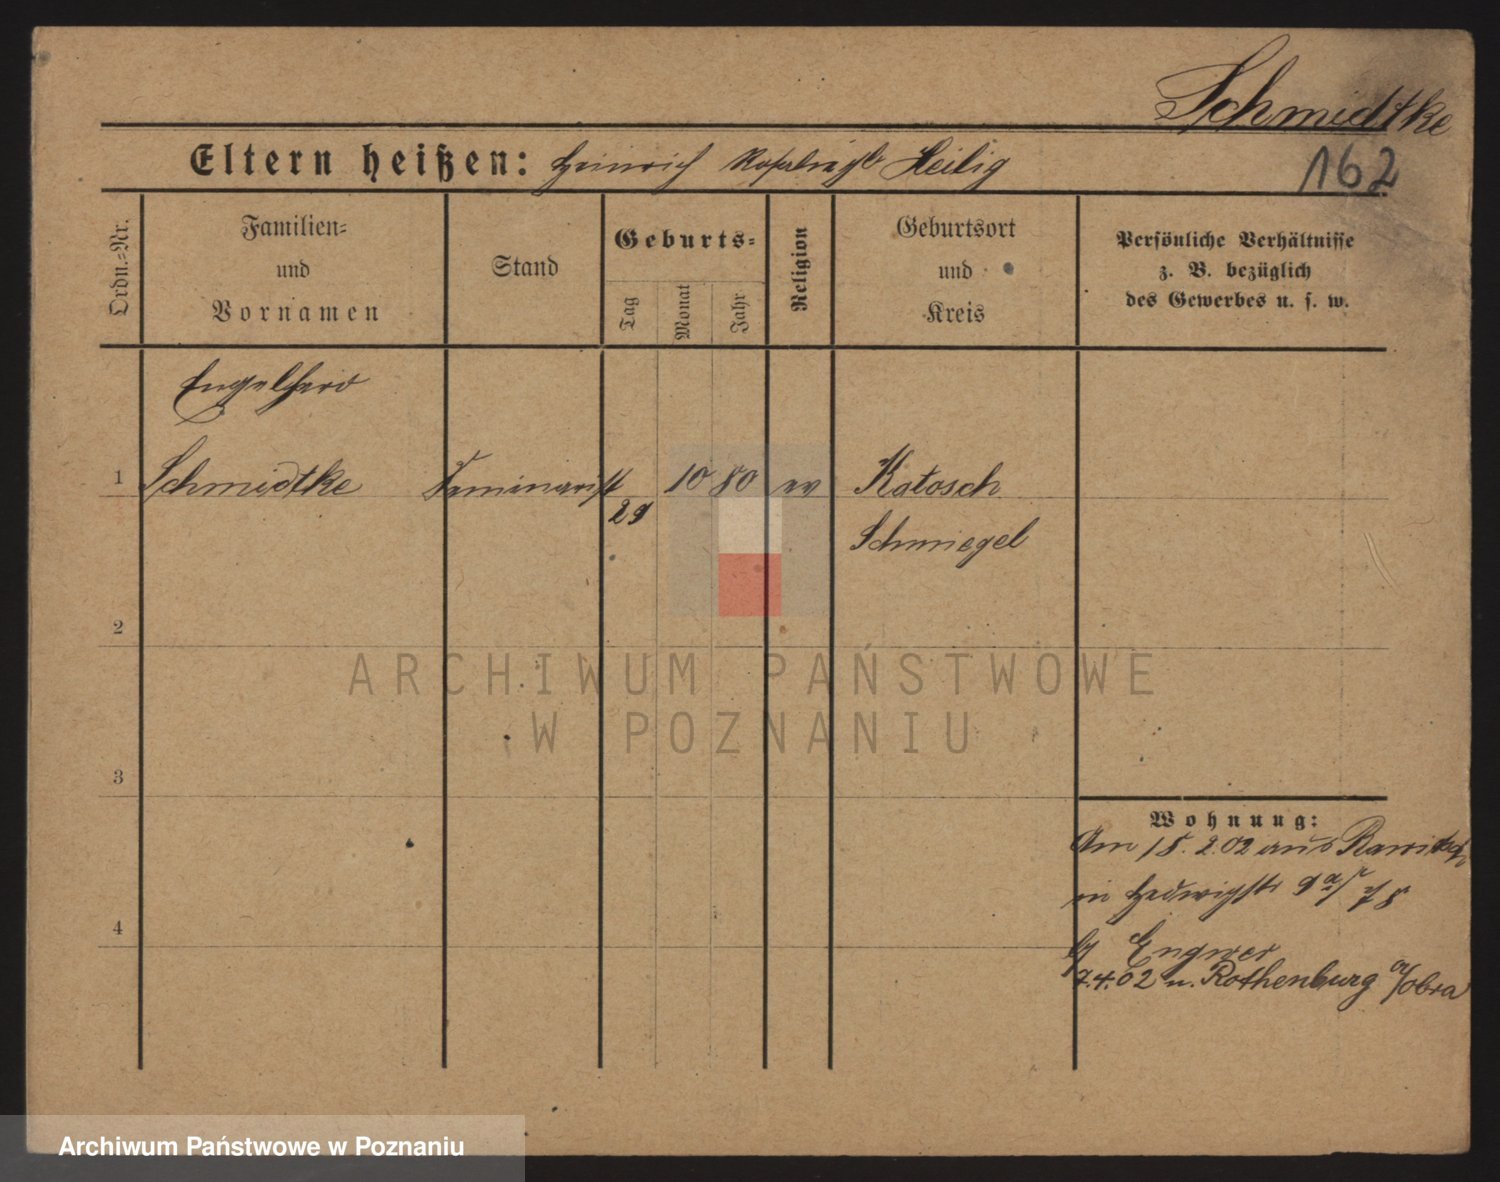 Schmidtke
Eltern heißen: Heinrich Heilig
162
Ordn.-Nr.
Familien-
und
Vornamen
Stand
Geburts-
Tag
Monat
Jahr
Religion
Geburtsort
und
Kreis
Persönliche Verhältnisse
z. B. bezüglich
des Gewerbes u. s. w.
Engelhard
1 Schmidtke Seminarist 10 80 ev Katosch
29
Schmiegel
2
ARCHIWUM PAŃSTWOWE
W POZNANIU
3
Wohnung:
Am 15.2.02 aus Rawitsch
in Hedwigstr 9
4
Engwer
9.4.02 n. Rothenburg a/Obra
Archiwum Państwowe w Poznaniu